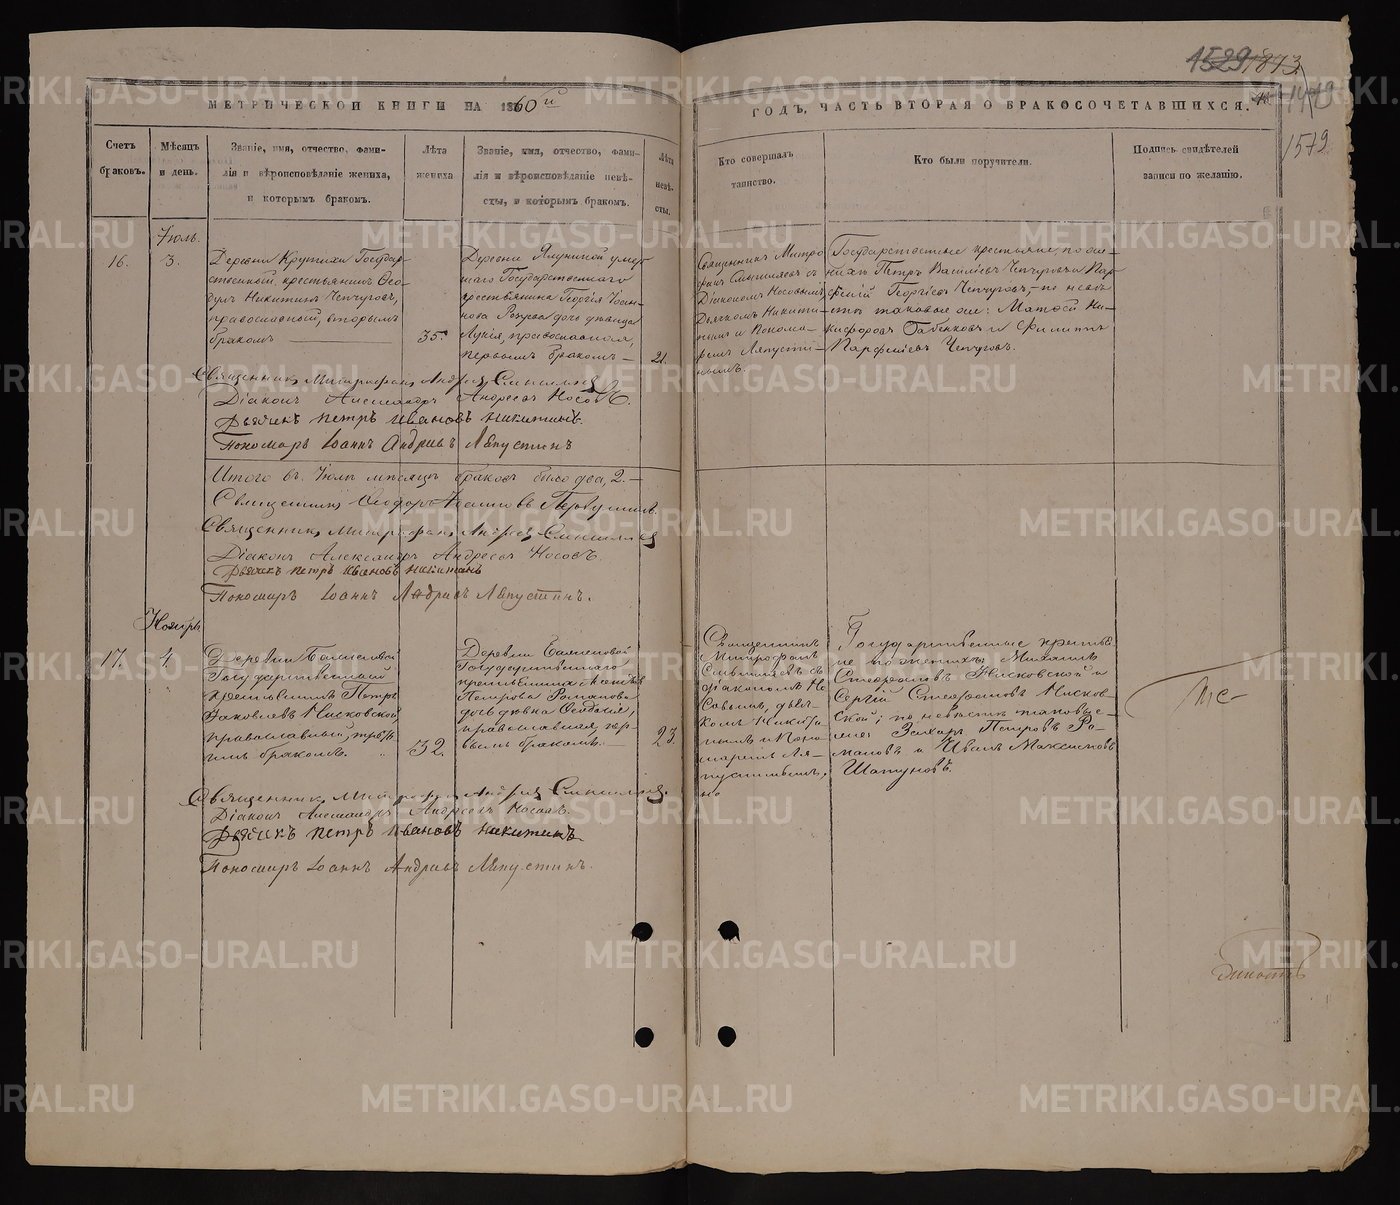 1529 1843.
1579
МЕТРИЧЕСКОЙ КНИГИ НА 1860й
ГОДЪ, ЧАСТЬ ВТОРАЯ О БРАКОСОЧЕТАВШИХСЯ.
Счетъ
браковъ.
Мѣсяцъ
и день.
Званіе, имя, отчество, фами-
лія и вѣроисповѣданіе жениха,
и которымъ бракомъ.
Лѣта
жениха
Званіе, имя, отчество, фами-
лія и вѣроисповѣданіе невѣ-
сты, и которымъ бракомъ.
Лѣта
невѣ-
сты.
Кто совершалъ
таинство.
Кто были поручители.
Подпись свидѣтелей
записи по желанію.
Іюль.
16.
3.
Деревни Крутихи Государ-
ственный крестьянинъ Ѳео-
дулъ Никитинъ Чепчуговъ,
православный, вторымъ
бракомъ
35.
Деревни Ялуниной умер-
шаго Государственнаго
крестьянина Георгія Іоан-
нова дочь дѣвица
Лукія, православная,
первымъ бракомъ —
21.
Священникъ Митро-
фанъ Смышляевъ съ
Діакономъ Носовымъ,
Дьячкомъ Никити-
нымъ и Понома-
ремъ Ляпусти-
нымъ.
Государственные крестьяне, по же-
нихѣ Петръ Василіевъ Чепчуговъ и Пар-
фений Георгіевъ Чепчуговъ, — по невѣ-
стѣ таковые же: Матѳей Ни-
кифоровъ и Филиппъ
Парфеніевъ Чепчуговъ.
Священникъ Митрофанъ Андреевъ Смышляевъ
Діаконъ Александръ Андреевъ Носовъ.
Дьячекъ Петръ Ивановъ Никитинъ.
Пономарь Іоаннъ Андреевъ Ляпустинъ
Итого въ Іюлѣ мѣсяцѣ браковъ было два, 2. —
Священникъ Ѳеодоръ Іоанновъ Первушинъ.
Священникъ Митрофанъ Андреевъ Смышляевъ
Діаконъ Александръ Андреевъ Носовъ.
Дьячекъ Петръ Ивановъ Никитинъ
Пономарь Іоаннъ Андреевъ Ляпустинъ.
Ноябрь
17.
4.
Деревни
Государственный
крестьянинъ Петръ
Яковлевъ Нисковской,
православный, треть-
имъ бракомъ.
32.
Деревни
Государственнаго
крестьянина
Петрова Романова
дочь дѣвка Ѳеодосія,
православная, пер-
вымъ бракомъ. —
23.
Священникъ
Митрофанъ
Смышляевъ съ
діакономъ Но-
совымъ, дьяч-
комъ Никити-
нымъ и Поно-
маремъ Ля-
пустинымъ.
Государственные крестья-
не по женихѣ: Михаилъ
Стефановъ Нисковской и
Сергій Стефановъ Нисков-
ской; по невѣстѣ таковые-
же: Захаръ Петровъ Ро-
мановъ и Иванъ Максимовъ
Шапуновъ.
Священникъ Митрофанъ Андреевъ Смышляевъ.
Діаконъ Александръ Андреевъ Носовъ.
Дьячекъ Петръ Ивановъ Никитинъ.
Пономарь Іоаннъ Андреевъ Ляпустинъ.
METRIKI.GASO-URAL.RU